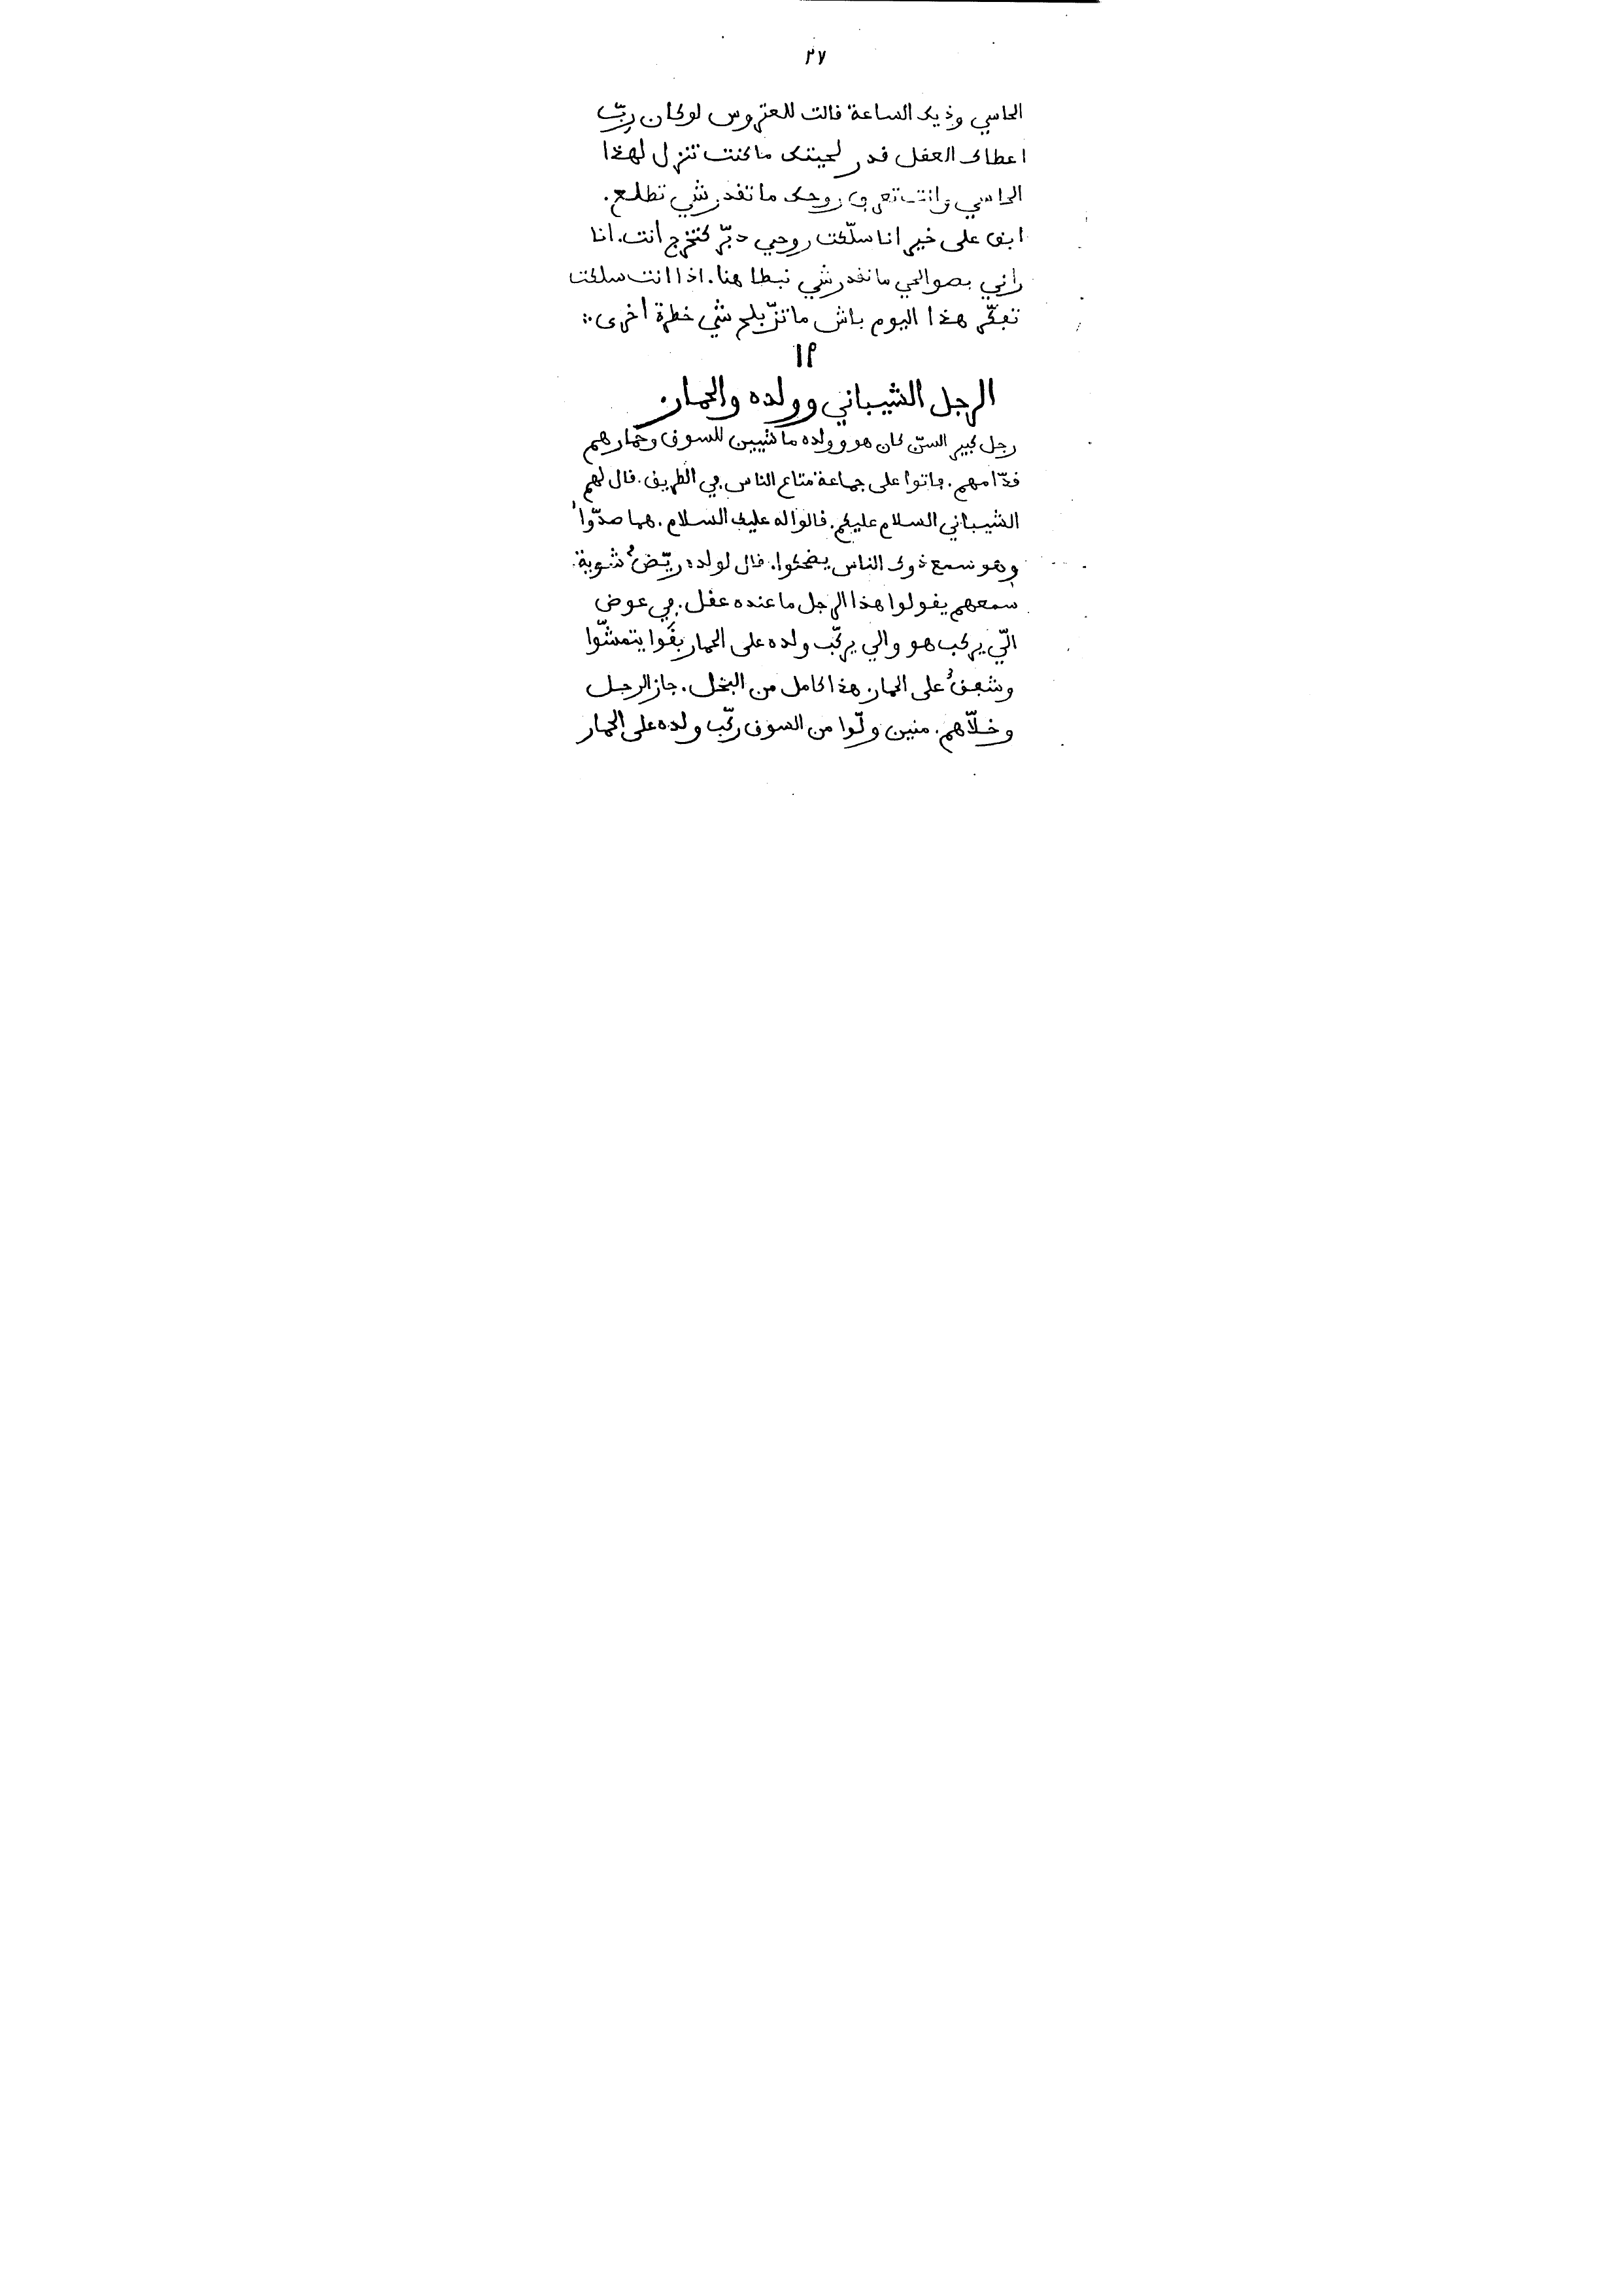 ٢٧
الحاسي وذيك الساعة قالت للعتروس لو كان ربّي
اعطاك العقل قدر لحيتك ما كنت تنزل لهذا
الحاسي وانت تعرف روحك ما تقدرشي تطلع.
ابق على خير انا سلّكت روحي دبّر كتخرج أنت. انا
راني بصوالحي ما نقدرشي نبطا هنا. اذا انت سلكت
تفكّر هذا اليوم باش ما تتزبلحشي خطرة أخرى
١٢
الرجل الشيباني وولده والحمار
رجل كبير السنّ كان هو وولده ماشيين للسوق وحمارهم
قدّامهم. فاتوا على جماعة متاع الناس في الطريق. قال لهم
الشيباني السلام عليكم. قالوا له عليك السلام. هما صدّوا
وهو سمع ذوك الناس يضحكوا. قال لولده ريّض شوية.
سمعهم يقولوا هذا الرجل ما عنده عقل. في عوض
الّي يركب هو والي يركّب ولده على الحمار بقوا يتمشّوا
وشفق على الحمار هذا كامل من البخل. جاز الرجل
وخلّاهم. منين ولّوا من السوق ركّب ولده على الحمار